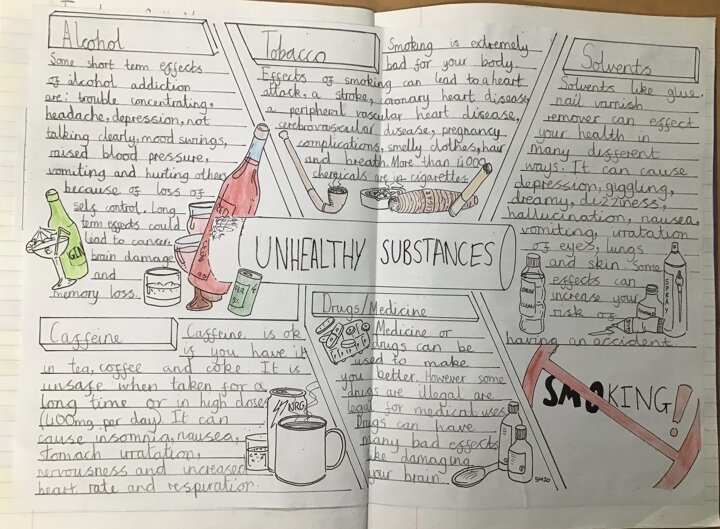 Alcohol
Some short term effects
of alcohol addiction
are: trouble concentrating,
headache, depression, not
talking clearly, mood swings,
raised blood pressure,
vomiting and hurting others
because of loss of
self control. Long
term effects could
lead to cancer,
brain damage
and
memory loss.
GIN
RED
BEER
Tobacco
Smoking is extremely
bad for your body.
Effects of smoking can lead to a heart
attack, a stroke, coronary heart disease,
a peripheral vascular heart disease,
cerebrovascular disease, pregnancy
complications, smelly clothes, hair
and breath. More than 4000
chemicals are in cigarettes.
Solvents
Solvents like glue,
nail varnish
remover can effect
your health in
many different
ways. It can cause
depression, giggling,
dreamy, dizziness,
hallucination, nausea,
vomiting, irratation
of eyes, lungs
and skin. Some
effects can
increase your
risk of
having an accident.
SPRAY
UNHEALTHY SUBSTANCES
Caffeine
Caffeine is ok
if you have it
in tea, coffee and coke. It is
unsafe when taken for a
long time or in high doses
(400mg per day). It can
cause insomnia, nausea,
stomach irratation,
nervousness and increased
heart rate and respiration.
NRG
Drugs/Medicine
Medicine or
drugs can be
used to make
you better. However some
drugs are illegal are
legal for medical uses.
Drugs can have
many bad effects
like damaging
your brain.
SMOKING!